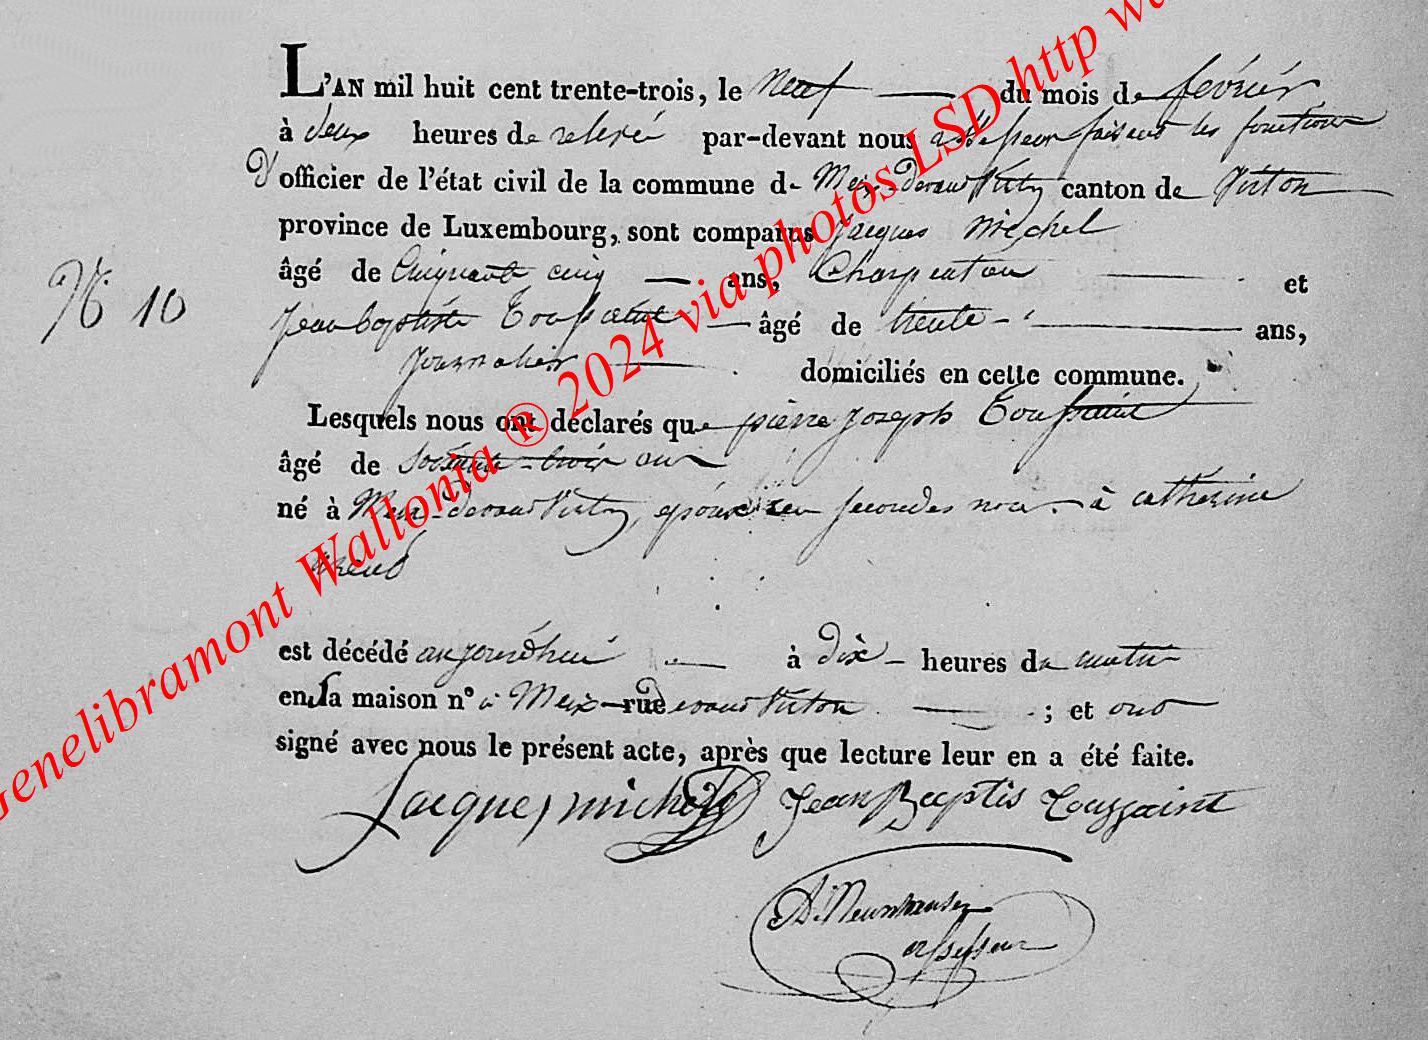 L'AN mil huit cent trente-trois, le Neuf du mois de février
à deux heures de relevé par-devant nous assesseur faisant les fonctions
D'officier de l'état civil de la commune de Meix-devant Virton canton de Virton
province de Luxembourg, sont comparus Jacques Michel
âgé de Cinquante cinq ans, Charpentier et
N° 10
Jean baptiste Toussaint âgé de trente ans,
Journalier domiciliés en cette commune.
Lesquels nous ont déclarés que pierre Joseph Toussaint
âgé de soixante-trois ans
né à Meix-devant Virton, époux en secondes noces à catherine
est décédé aujourd'hui à dix heures du matin
en sa maison n° à Meix-rue devant Virton ; et ont
signé avec nous le présent acte, après que lecture leur en a été faite.
Jacques michel Jean Baptis Toussaint
assesseur
Genelibramont Wallonia ® 2024 via photos LSD http w